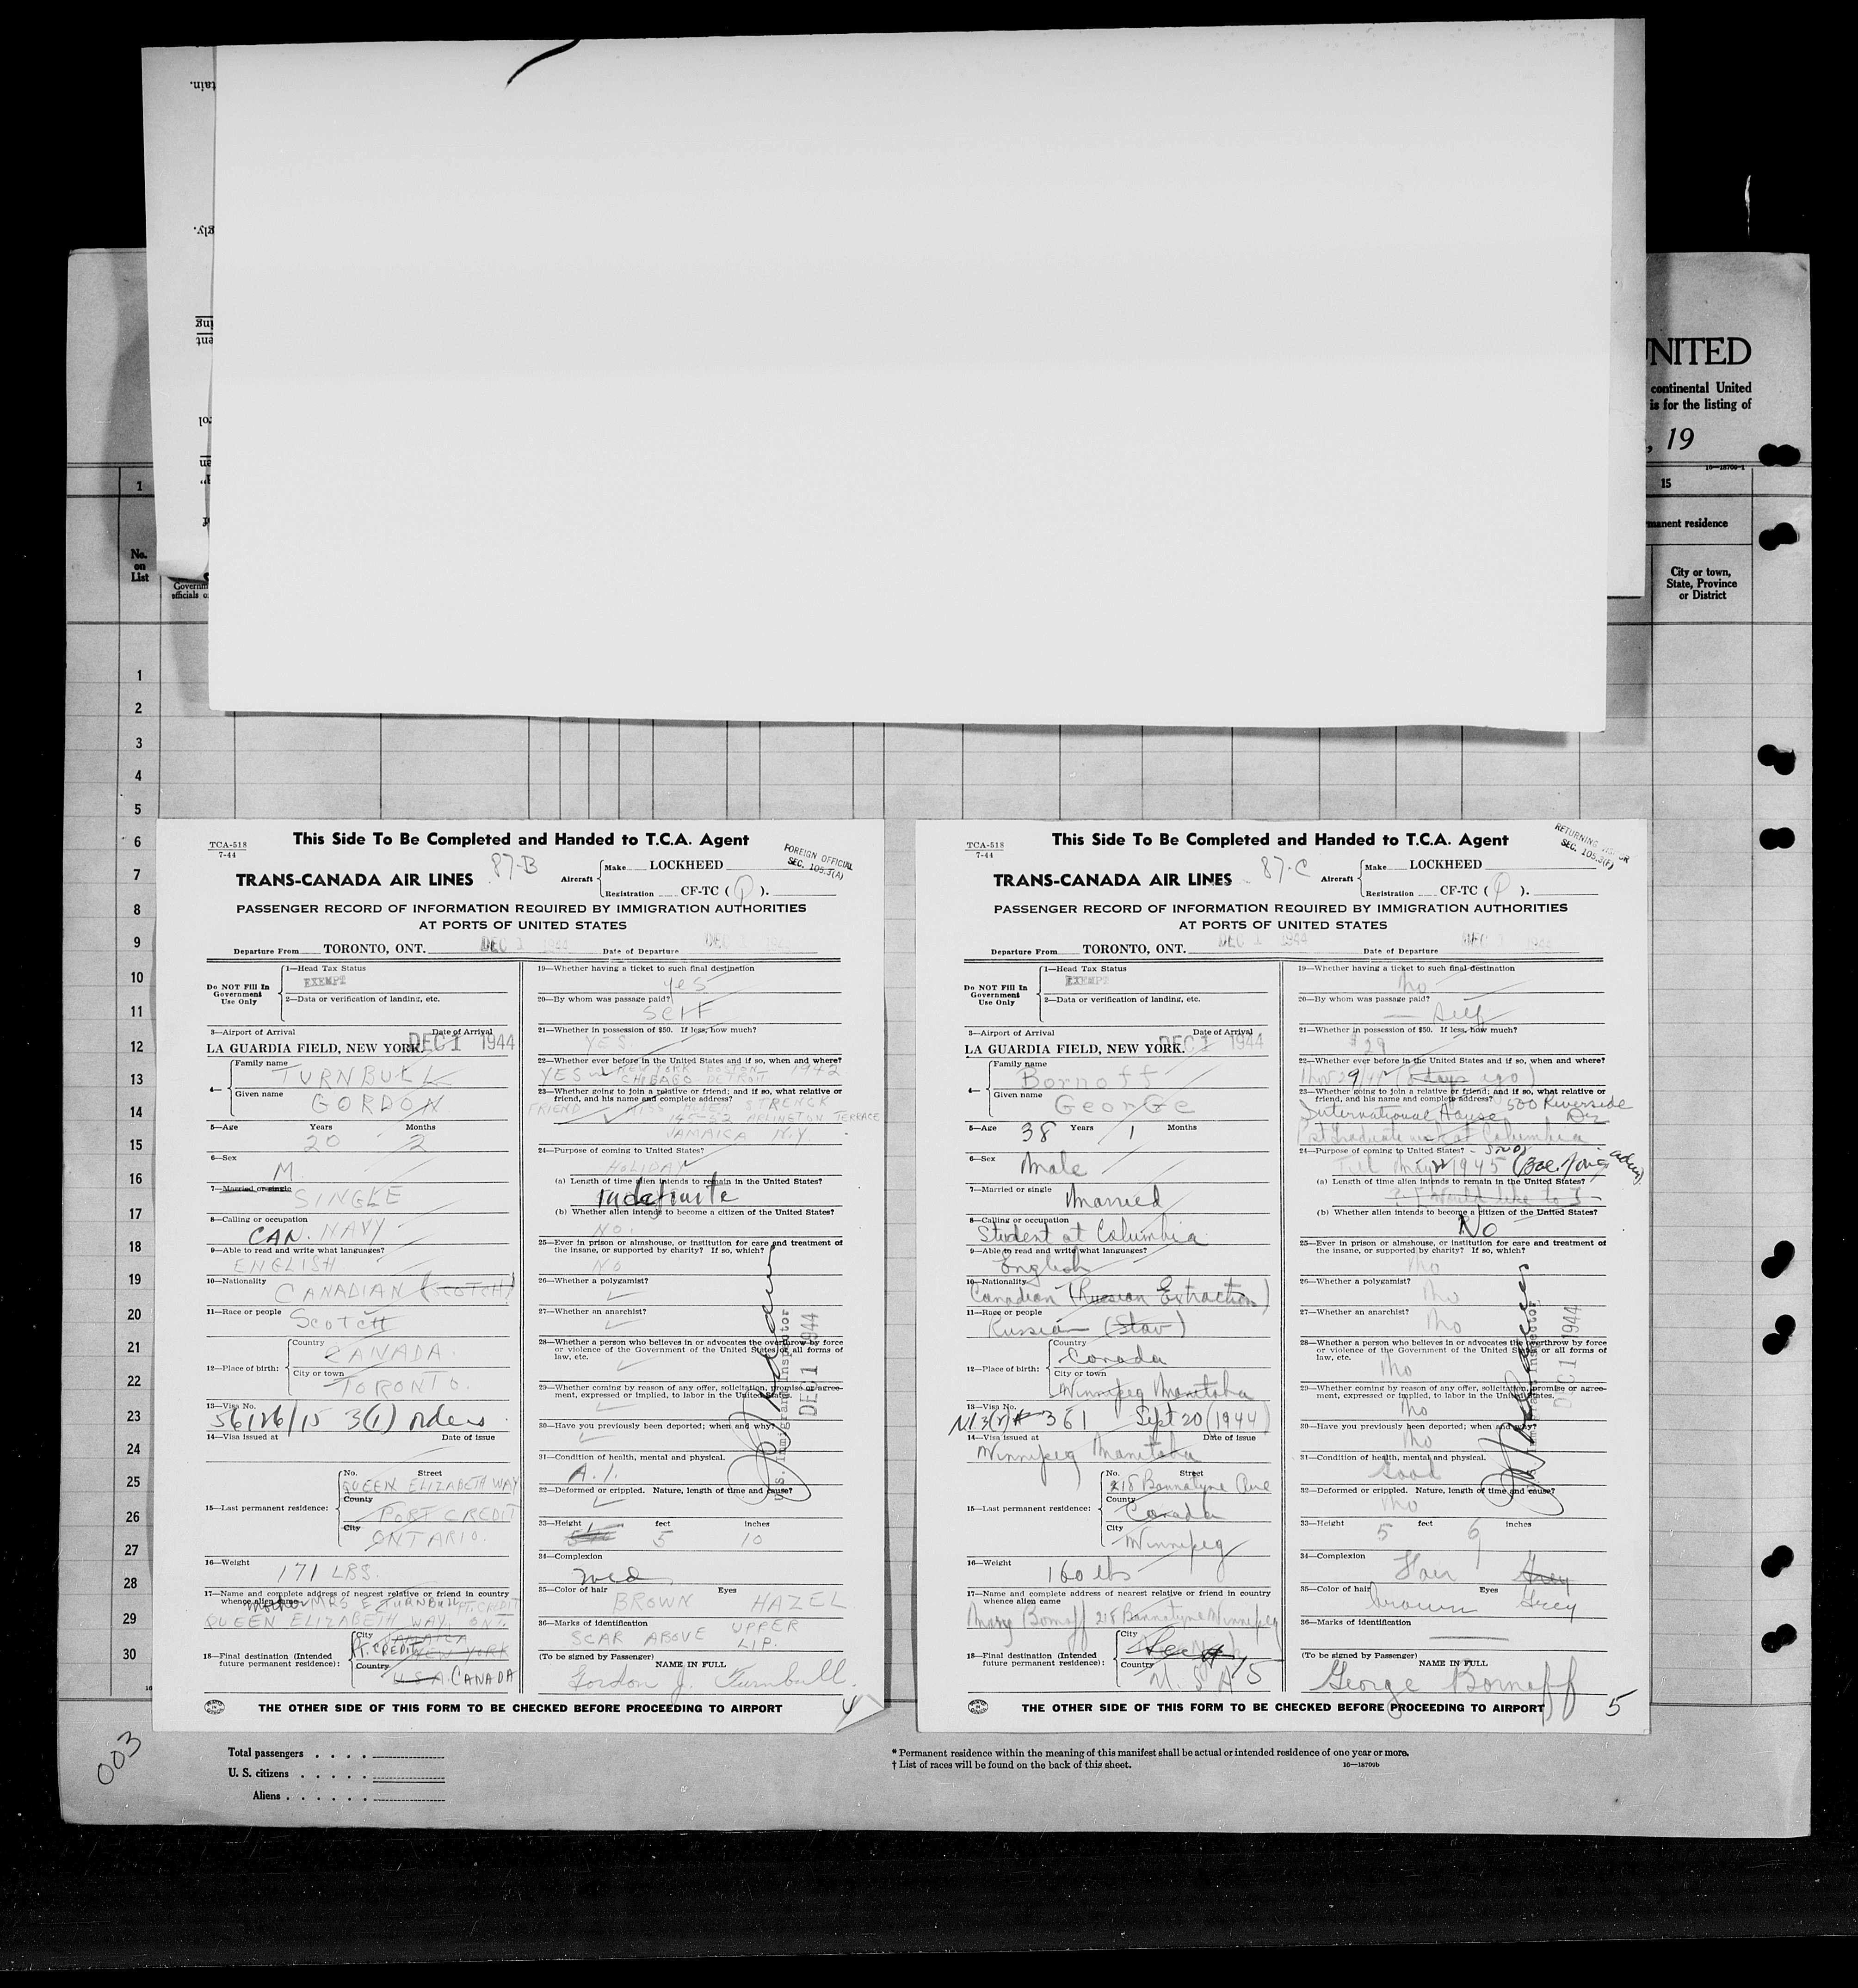 tain.
gly.
ing
ent
UNITED
continental United
is for the listing of
, 19
16—18709-1
1
15
manent residence
No.
on
List
Governm
officials o
City or town,
State, Province
or District
1
2
3
4
5
6
7
8
9
10
11
12
13
14
15
16
17
18
19
20
21
22
23
24
25
26
27
28
29
30
TCA-518
7-44
This Side To Be Completed and Handed to T.C.A. Agent
FOREIGN OFFICIAL
SEC. 105.3(A)
87-B
TRANS-CANADA AIR LINES
Aircraft
Make LOCKHEED
Registration CF-TC (Q).
PASSENGER RECORD OF INFORMATION REQUIRED BY IMMIGRATION AUTHORITIES
AT PORTS OF UNITED STATES
Departure From TORONTO, ONT. DEC 1 1944 Date of Departure DEC 1 1944
Do NOT Fill In
Government
Use Only
1—Head Tax Status
EXEMPT
2—Data or verification of landing, etc.
3—Airport of Arrival Date of Arrival
LA GUARDIA FIELD, NEW YORK. DEC 1 1944
4— Family name
TURNBULL
Given name
GORDON
5—Age Years Months
20 2
6—Sex
M
7—Married or single
SINGLE
8—Calling or occupation
CAN. NAVY
9—Able to read and write what languages?
ENGLISH
10—Nationality
CANADIAN (SCOTCH)
11—Race or people
Scotch
12—Place of birth:
Country
CANADA.
City or town
TORONTO.
13—Visa No.
56126/15 3(1) orders
14—Visa issued at Date of issue
15—Last permanent residence:
No. Street
QUEEN ELIZABETH WAY
County
PORT CREDIT
City
ONTARIO.
16—Weight
171 LBS.
17—Name and complete address of nearest relative or friend in country
whence alien came
mother MRS E. TURNBULL PT. CREDIT
QUEEN ELIZABETH WAY ONT.
18—Final destination (Intended
future permanent residence):
City
JAMAICA
PT. CREDIT NEW YORK
Country
U.S.A. CANADA
19—Whether having a ticket to such final destination
yes
20—By whom was passage paid?
SELF
21—Whether in possession of $50. If less, how much?
YES.
22—Whether ever before in the United States and if so, when and where?
YES NEW YORK BOSTON 1942
CHICAGO DETROIT
23—Whether going to join a relative or friend; and if so, what relative or
friend, and his name and complete address?
FRIEND MISS HELEN STRENCK
145-52 ARLINGTON TERRACE
JAMAICA N.Y.
24—Purpose of coming to United States?
HOLIDAY
(a) Length of time alien intends to remain in the United States?
indefinite
(b) Whether alien intends to become a citizen of the United States?
NO.
25—Ever in prison or almshouse, or institution for care and treatment of
the insane, or supported by charity? If so, which?
NO
26—Whether a polygamist?
27—Whether an anarchist?
28—Whether a person who believes in or advocates the overthrow by force
or violence of the Government of the United States or all forms of
law, etc.
29—Whether coming by reason of any offer, solicitation, promise or agree-
ment, expressed or implied, to labor in the United States.
30—Have you previously been deported; when and why?
31—Condition of health, mental and physical.
A.1.
32—Deformed or crippled. Nature, length of time and cause?
33—Height feet inches
5 10
34—Complexion
med
35—Color of hair Eyes
BROWN HAZEL
36—Marks of identification
SCAR ABOVE UPPER
LIP.
(To be signed by Passenger)
NAME IN FULL
Gordon J. Turnbull.
U.S. Immigrant Inspector
DEC 1 1944
THE OTHER SIDE OF THIS FORM TO BE CHECKED BEFORE PROCEEDING TO AIRPORT
4
TCA-518
7-44
This Side To Be Completed and Handed to T.C.A. Agent
RETURNING VISITOR
SEC. 105.3(F)
87-C
TRANS-CANADA AIR LINES
Aircraft
Make LOCKHEED
Registration CF-TC (Q).
PASSENGER RECORD OF INFORMATION REQUIRED BY IMMIGRATION AUTHORITIES
AT PORTS OF UNITED STATES
Departure From TORONTO, ONT. DEC 1 1944 Date of Departure DEC 1 1944
Do NOT Fill In
Government
Use Only
1—Head Tax Status
EXEMPT
2—Data or verification of landing, etc.
3—Airport of Arrival Date of Arrival
LA GUARDIA FIELD, NEW YORK. DEC 1 1944
4— Family name
Bornoff
Given name
George
5—Age Years Months
38 1
6—Sex
Male
7—Married or single
Married
8—Calling or occupation
Student at Columbia
9—Able to read and write what languages?
English
10—Nationality
Canadian (Russian Extraction)
11—Race or people
Russian (Slav)
12—Place of birth:
Country
Canada
City or town
Winnipeg Manitoba
13—Visa No.
361 Sept 20 (1944)
14—Visa issued at Date of issue
Winnipeg Manitoba
15—Last permanent residence:
No. Street
218 Bannatyne Ave
County
Canada
City
Winnipeg
16—Weight
160 lbs
17—Name and complete address of nearest relative or friend in country
whence alien came
Mary Bornoff 218 Bannatyne Winnipeg
18—Final destination (Intended
future permanent residence):
City
Country
U.S.A 15
19—Whether having a ticket to such final destination
No
20—By whom was passage paid?
— Self
21—Whether in possession of $50. If less, how much?
$29
22—Whether ever before in the United States and if so, when and where?
Nov 29/44 (days ago)
23—Whether going to join a relative or friend; and if so, what relative or
friend, and his name and complete address?
International House 500 Riverside
Dr
Post Graduate work at Columbia
24—Purpose of coming to United States?
Till May 1945
(a) Length of time alien intends to remain in the United States?
would like to
(b) Whether alien intends to become a citizen of the United States?
No
25—Ever in prison or almshouse, or institution for care and treatment of
the insane, or supported by charity? If so, which?
No
26—Whether a polygamist?
No
27—Whether an anarchist?
No
28—Whether a person who believes in or advocates the overthrow by force
or violence of the Government of the United States or all forms of
law, etc.
No
29—Whether coming by reason of any offer, solicitation, promise or agree-
ment, expressed or implied, to labor in the United States.
No
30—Have you previously been deported; when and why?
No
31—Condition of health, mental and physical.
Good
32—Deformed or crippled. Nature, length of time and cause?
No
33—Height feet inches
5 6
34—Complexion
Fair Grey
35—Color of hair Eyes
brown Grey
36—Marks of identification
(To be signed by Passenger)
NAME IN FULL
George Bornoff
Immigrant Inspector
DEC 1 1944
THE OTHER SIDE OF THIS FORM TO BE CHECKED BEFORE PROCEEDING TO AIRPORT
5
003
Total passengers . . . .
U. S. citizens . . . . .
Aliens . . . . . .
* Permanent residence within the meaning of this manifest shall be actual or intended residence of one year or more.
† List of races will be found on the back of this sheet.
16—18709b